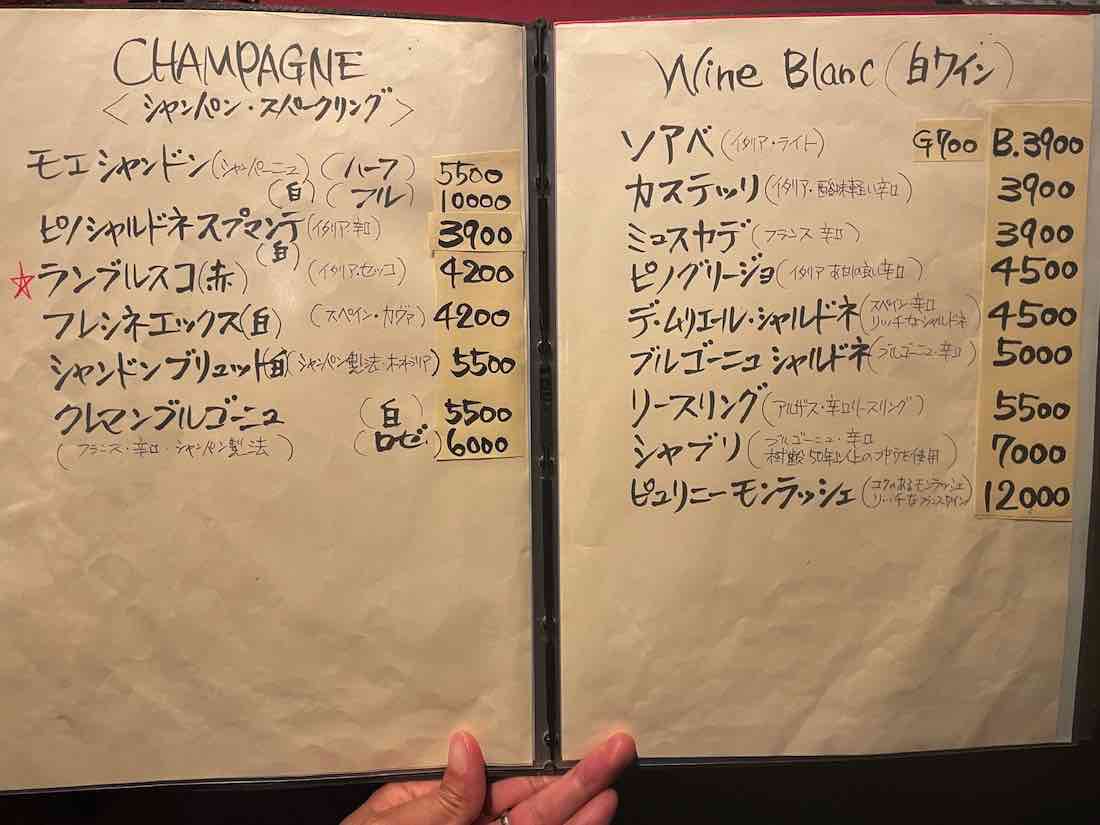 CHAMPAGNE
<シャンパン・スパークリング>
モエシャンドン(シャンパーニュ)(ハーフ) 5500
(白)(フル) 10000
ピノシャルドネスプマンテ(イタリア辛口) 3900
(白)
☆ランブルスコ(赤) (イタリア・セッコ) 4200
フレシネエックス(白) (スペイン・カヴァ) 4200
シャンドンブリュット白(シャンパン製法・オーストラリア) 5500
クレマンブルゴーニュ (白) 5500
(フランス・辛口・シャンパン製法) (ロゼ) 6000
Wine Blanc (白ワイン)
ソアベ(イタリア・ライト) G700 B.3900
カステッリ(イタリア・酸味軽い辛口) 3900
ミュスカデ(フランス 辛口) 3900
ピノグリージョ(イタリア 香りの良い辛口) 4500
デ・ムリエール・シャルドネ(スペイン・辛口 リッチなシャルドネ) 4500
ブルゴーニュシャルドネ(ブルゴーニュ・辛口) 5000
リースリング(アルザス・辛口リースリング) 5500
シャブリ(ブルゴーニュ・辛口 樹齢50年以上のブドウを使用) 7000
ピュリニーモンラッシェ(コクのあるモンラッシェ リッチなフランスワイン) 12000